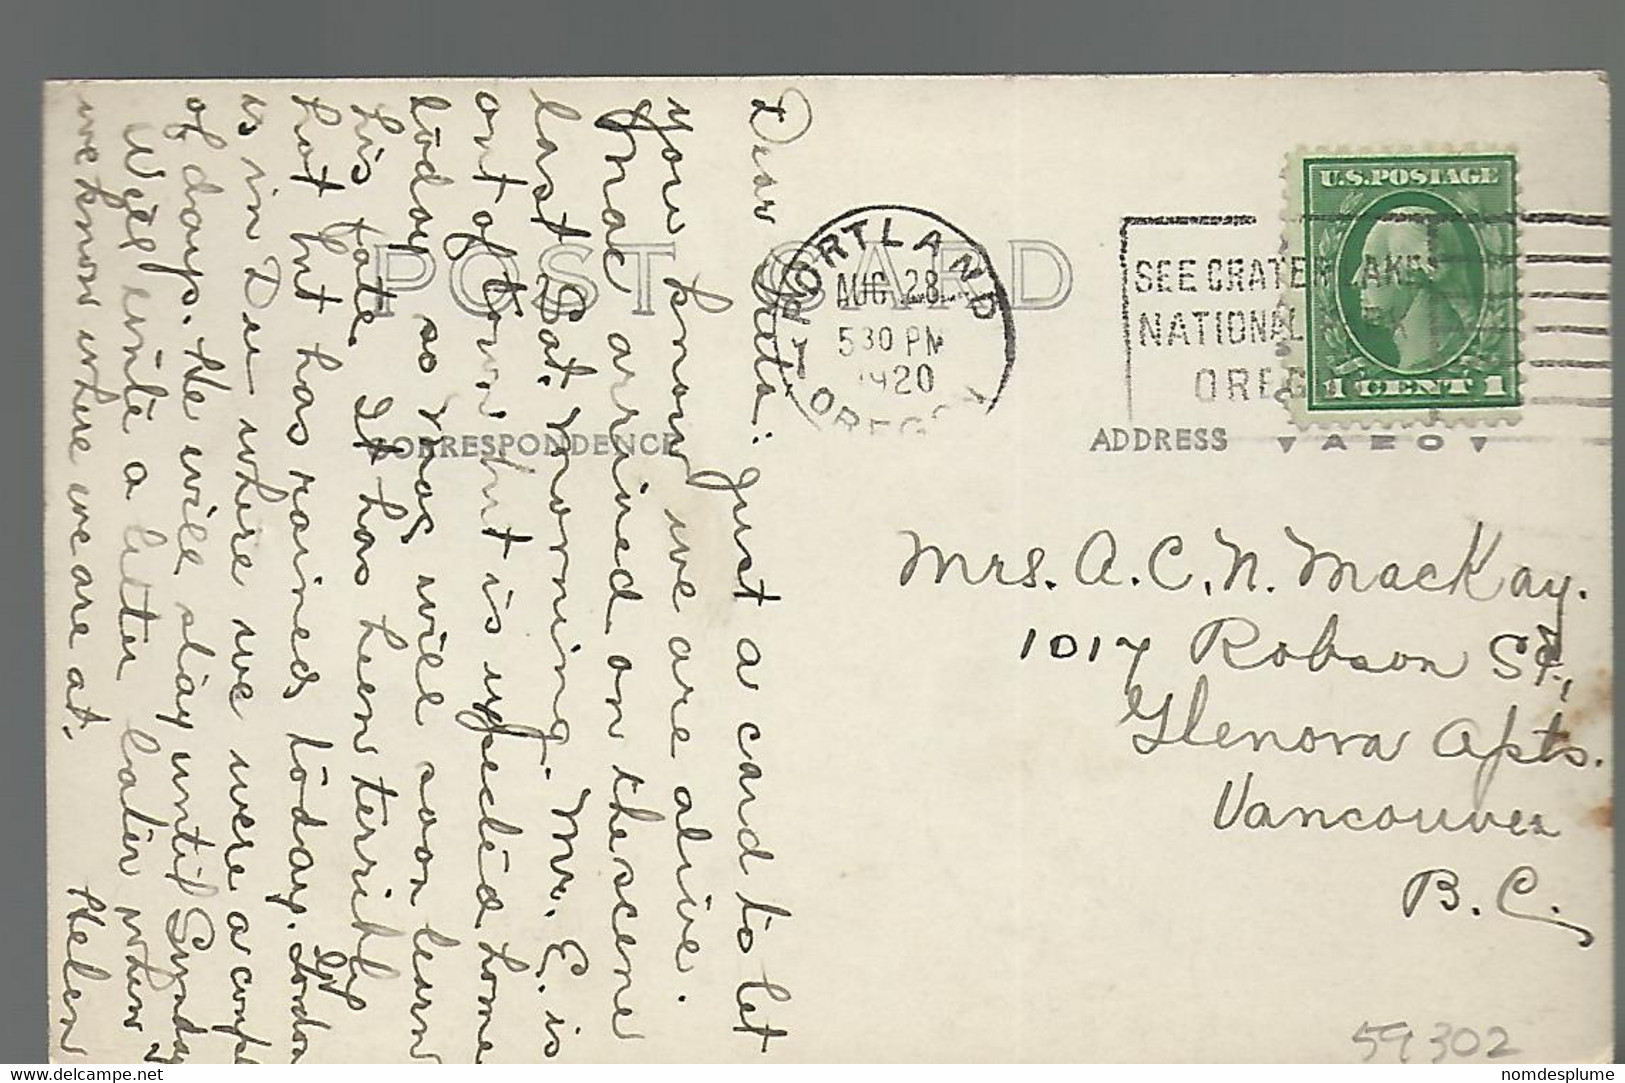 POST CARD
CORRESPONDENCE
ADDRESS
▾ AZO ▾
U.S. POSTAGE
1 CENT 1
PORTLAND
AUG 28
530 PM
1920
OREGON
SEE CRATER LAKE
NATIONAL PARK
OREG
Dear : just a card to let
you know we are alive.
Mac arrived on the scene
last Sat. morning. Mr. E. is
out of town but is expected home
today so Mac will soon learn
his fate. It has been terribly
hot but has rained today. Gordon
is in Du where we were a coupl
of days. He will stay until Sunday
Will write a letter later when
we know where we are at.
Helen
Mrs. A. C. N. MacKay.
1017 Robson St.,
Glenora Apts.
Vancouver
B. C.
59302
delcampe.net
nomdesplume